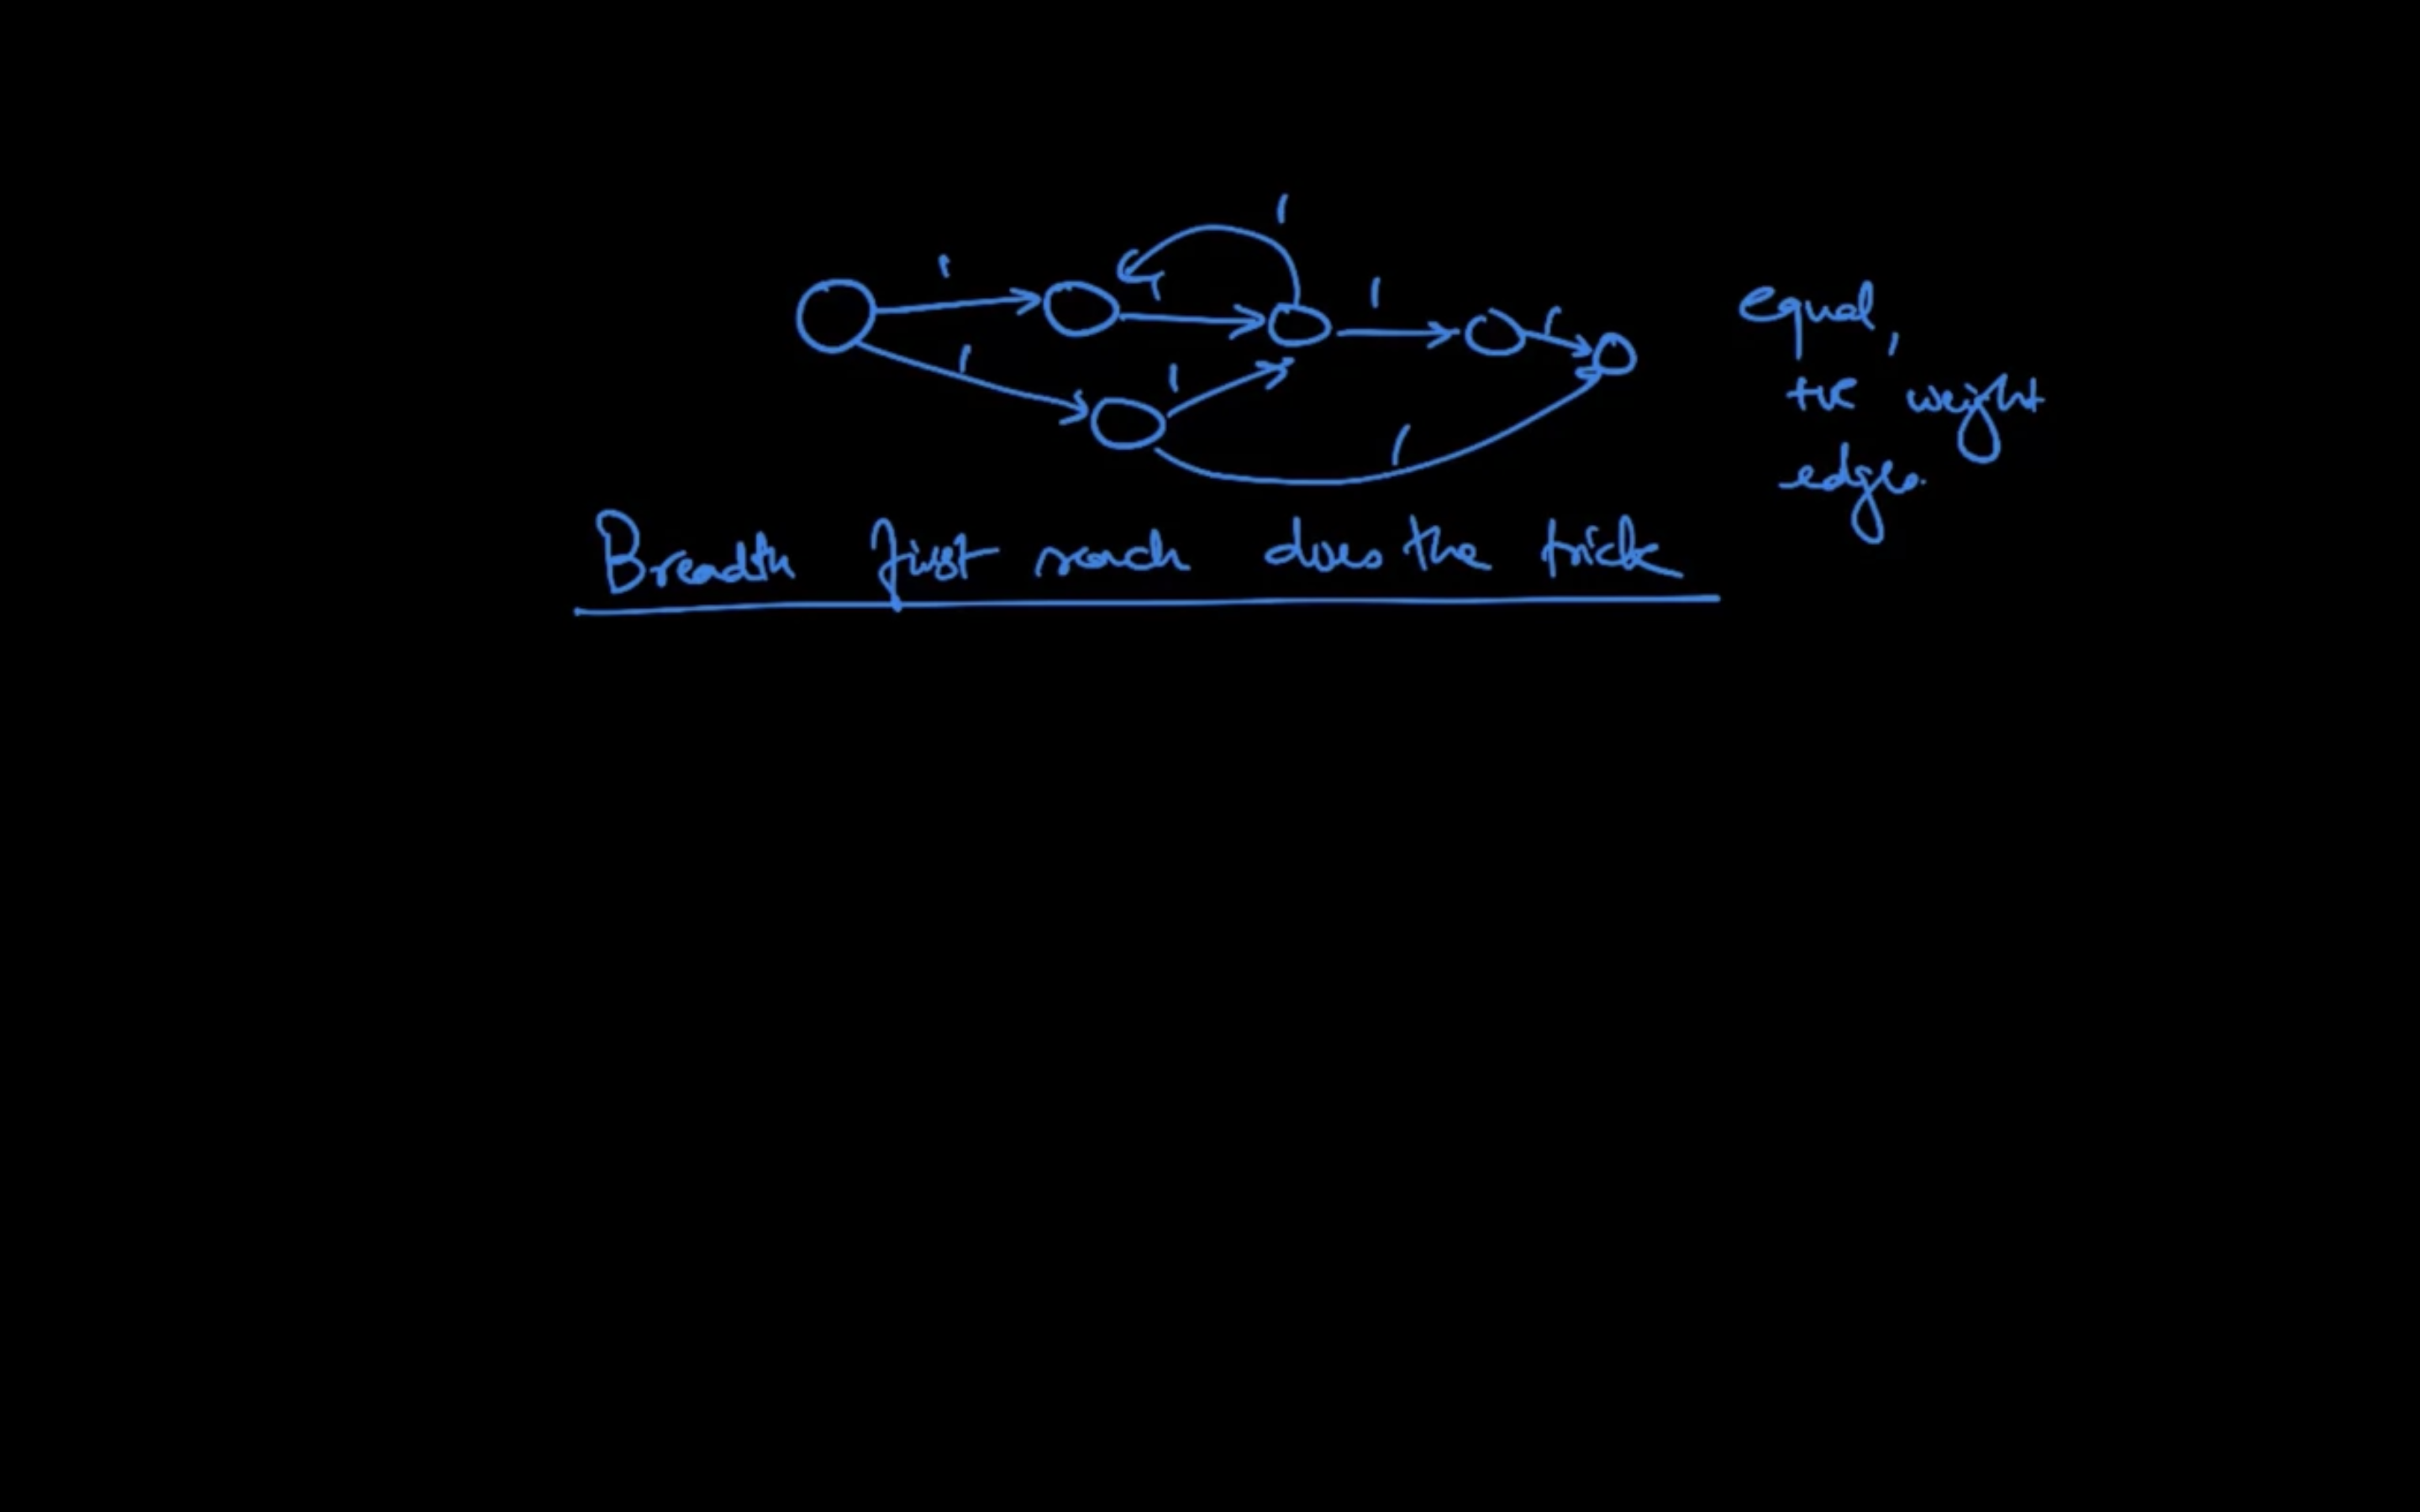 1
1
1
1
1
1
1
1
equal,
+ve weight
edges.
Breadth first search does the trick